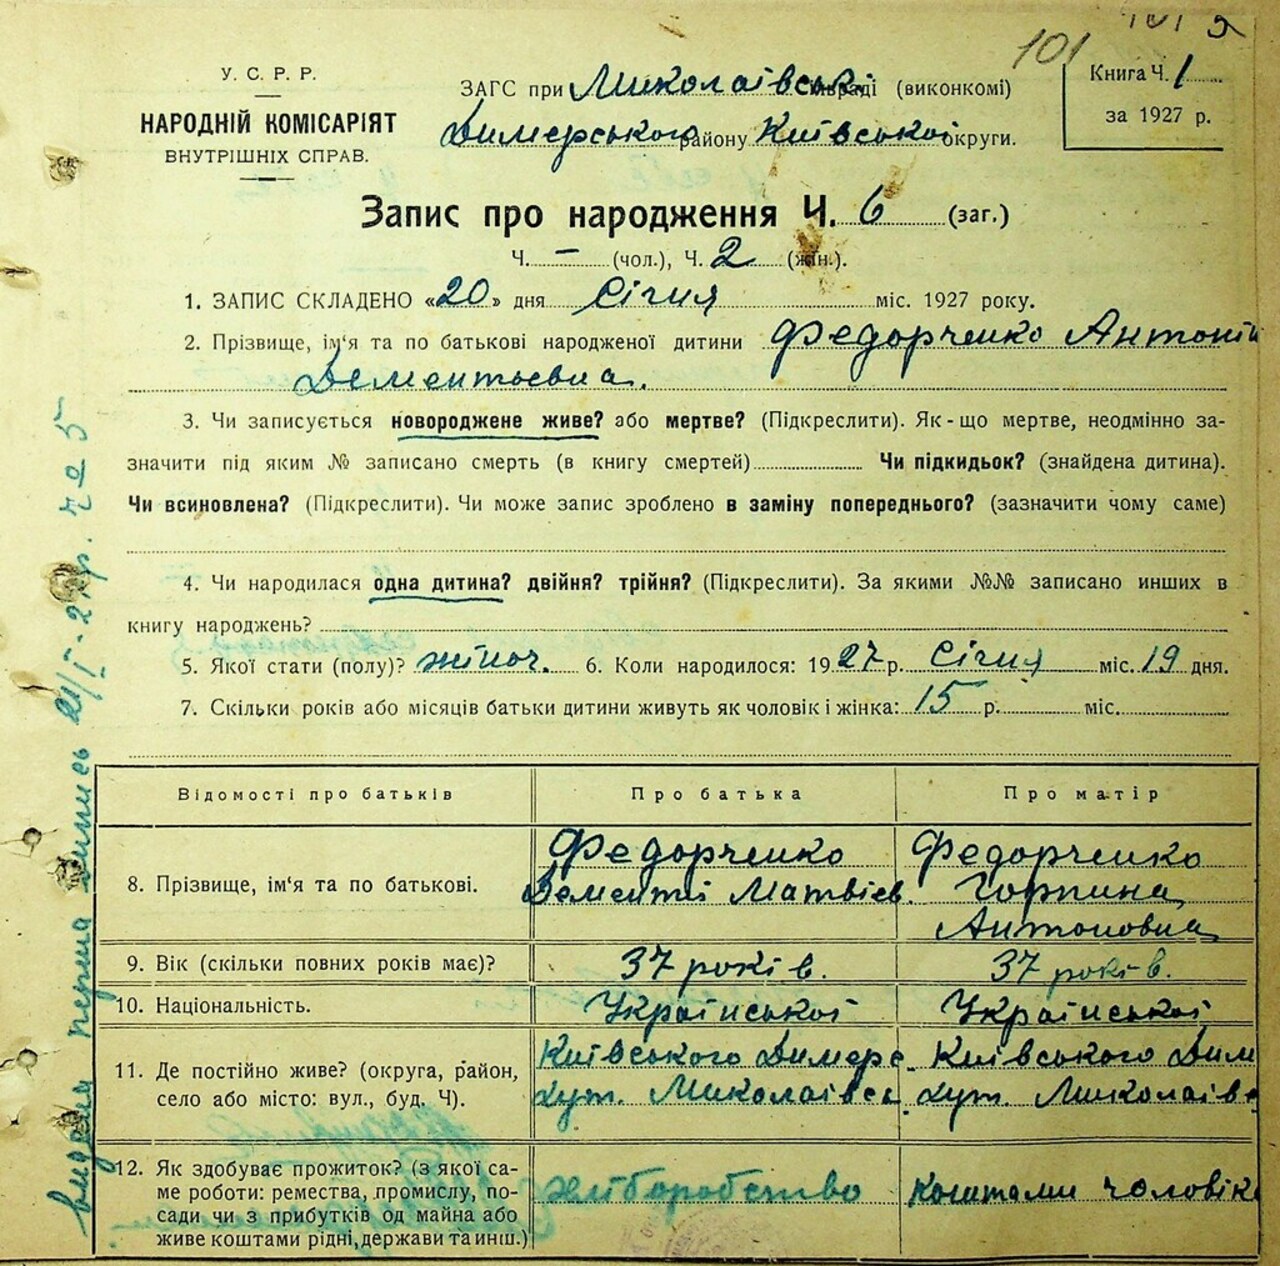 101
У. С. Р. Р.
НАРОДНІЙ КОМІСАРІЯТ
ВНУТРІШНІХ СПРАВ.
ЗАГС при Миколаївські сільраді (виконкомі)
Димерського району Київської округи.
Книга Ч. 1
за 1927 р.
Запис про народження Ч. 6 (заг.)
Ч. – (чол.), Ч. 2 (жін.).
1. ЗАПИС СКЛАДЕНО «20» дня Січня міс. 1927 року.
2. Прізвище, ім‘я та по батькові народженої дитини Федорченко Антонін
Дементьевна.
3. Чи записується новороджене живе? або мертве? (Підкреслити). Як-що мертве, неодмінно за-
значити під яким № записано смерть (в книгу смертей) Чи підкидьок? (знайдена дитина).
Чи всиновлена? (Підкреслити). Чи може запис зроблено в заміну попереднього? (зазначити чому саме)
4. Чи народилася одна дитина? двійня? трійня? (Підкреслити). За якими №№ записано инших в
книгу народжень?
5. Якої стати (полу)? жіноч. 6. Коли народилося: 1927 р. Січня міс. 19 дня.
7. Скільки років або місяців батьки дитини живуть як чоловік і жінка: 15 р. міс.
Відомості про батьків Про батька Про матір
8. Прізвище, ім‘я та по батькові. Федорченко Дементі Матвієв. Федорченко Горпина Антоновна
9. Вік (скільки повних років має)? 37 років. 37 років.
10. Національність. Української Української
11. Де постійно живе? (округа, район, Київського Димерс Київського Дим
село або місто: вул., буд. Ч). хут. Миколаївсь хут. Миколаївс
12. Як здобуває прожиток? (з якої са-
ме роботи: ремества, промислу, по- хліборобство коштами чоловік
сади чи з прибутків од майна або
живе коштами рідні, держави та инш.)